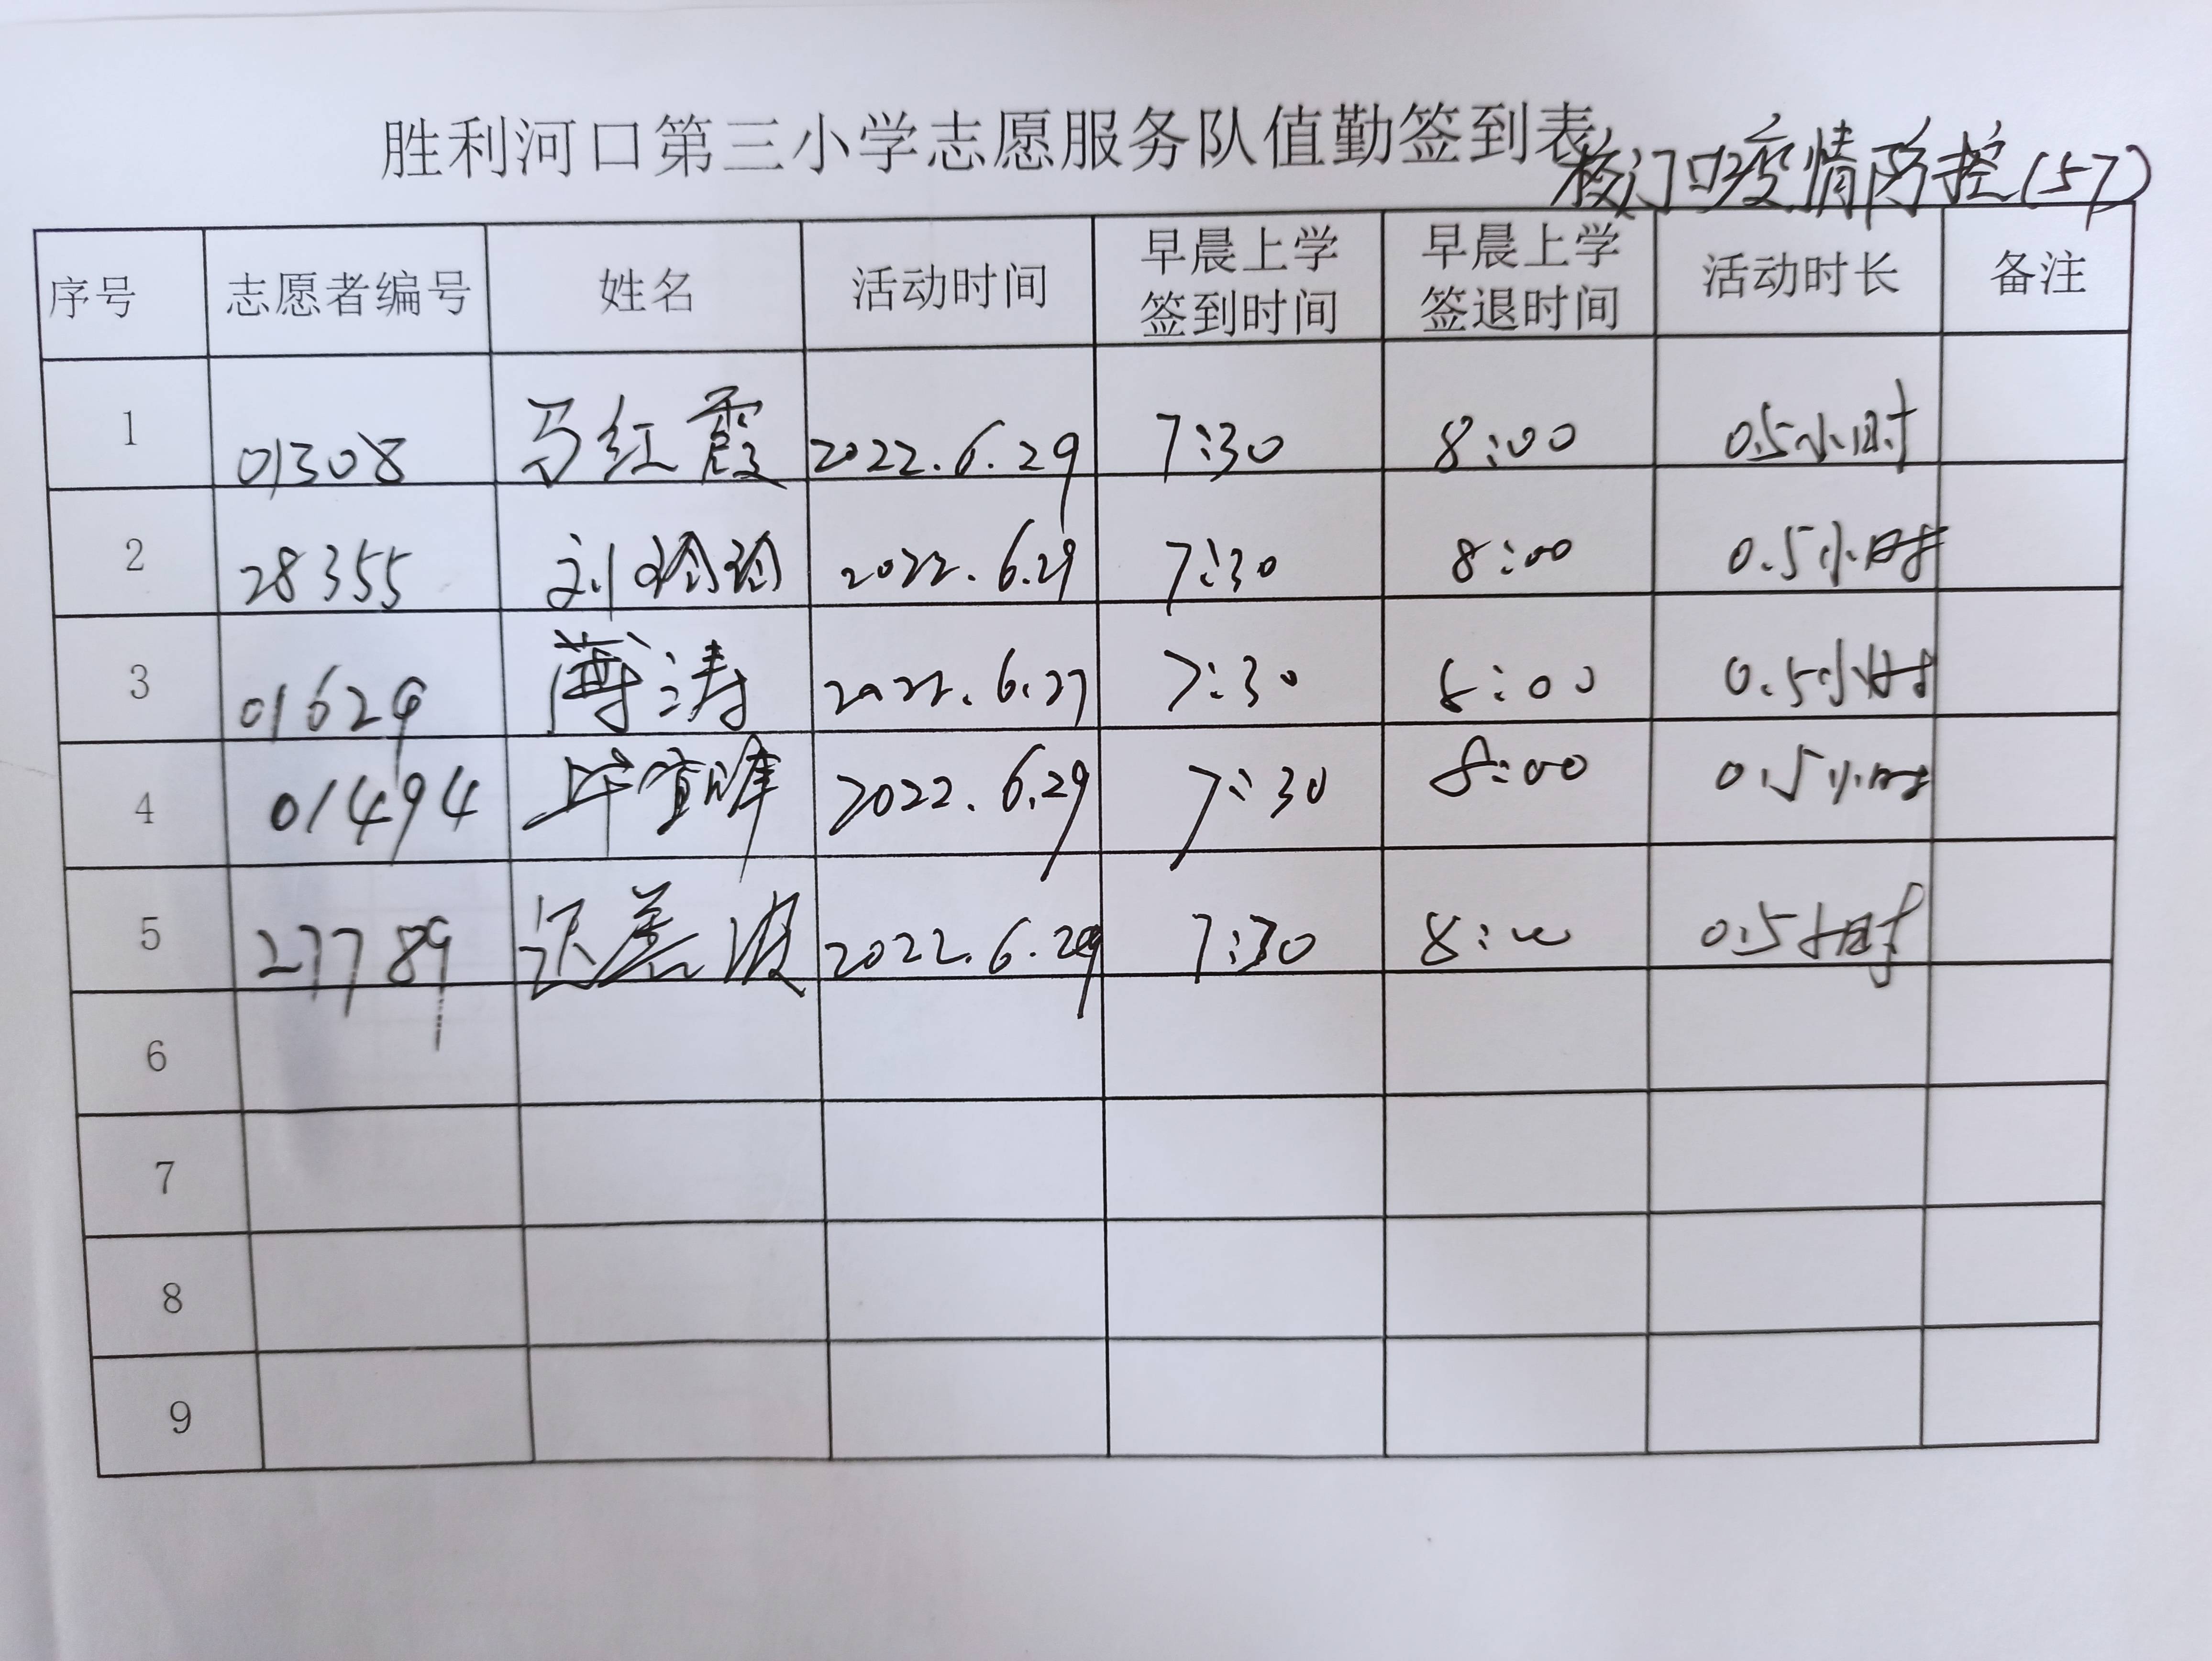 胜利河口第三小学志愿服务队值勤签到表
校门口疫情防控(57)
序号 志愿者编号 姓名 活动时间 早晨上学签到时间 早晨上学签退时间 活动时长 备注
1 01308 马红霞 2022.6.29 7:30 8:00 0.5小时
2 28355 刘玲玲 2022.6.29 7:30 8:00 0.5小时
3 01629 薄涛 2022.6.27 7:30 8:00 0.5小时
4 01494 毕宣峰 2022.6.29 7:30 8:00 0.5小时
5 27789 2022.6.29 7:30 8:00 0.5小时
6
7
8
9